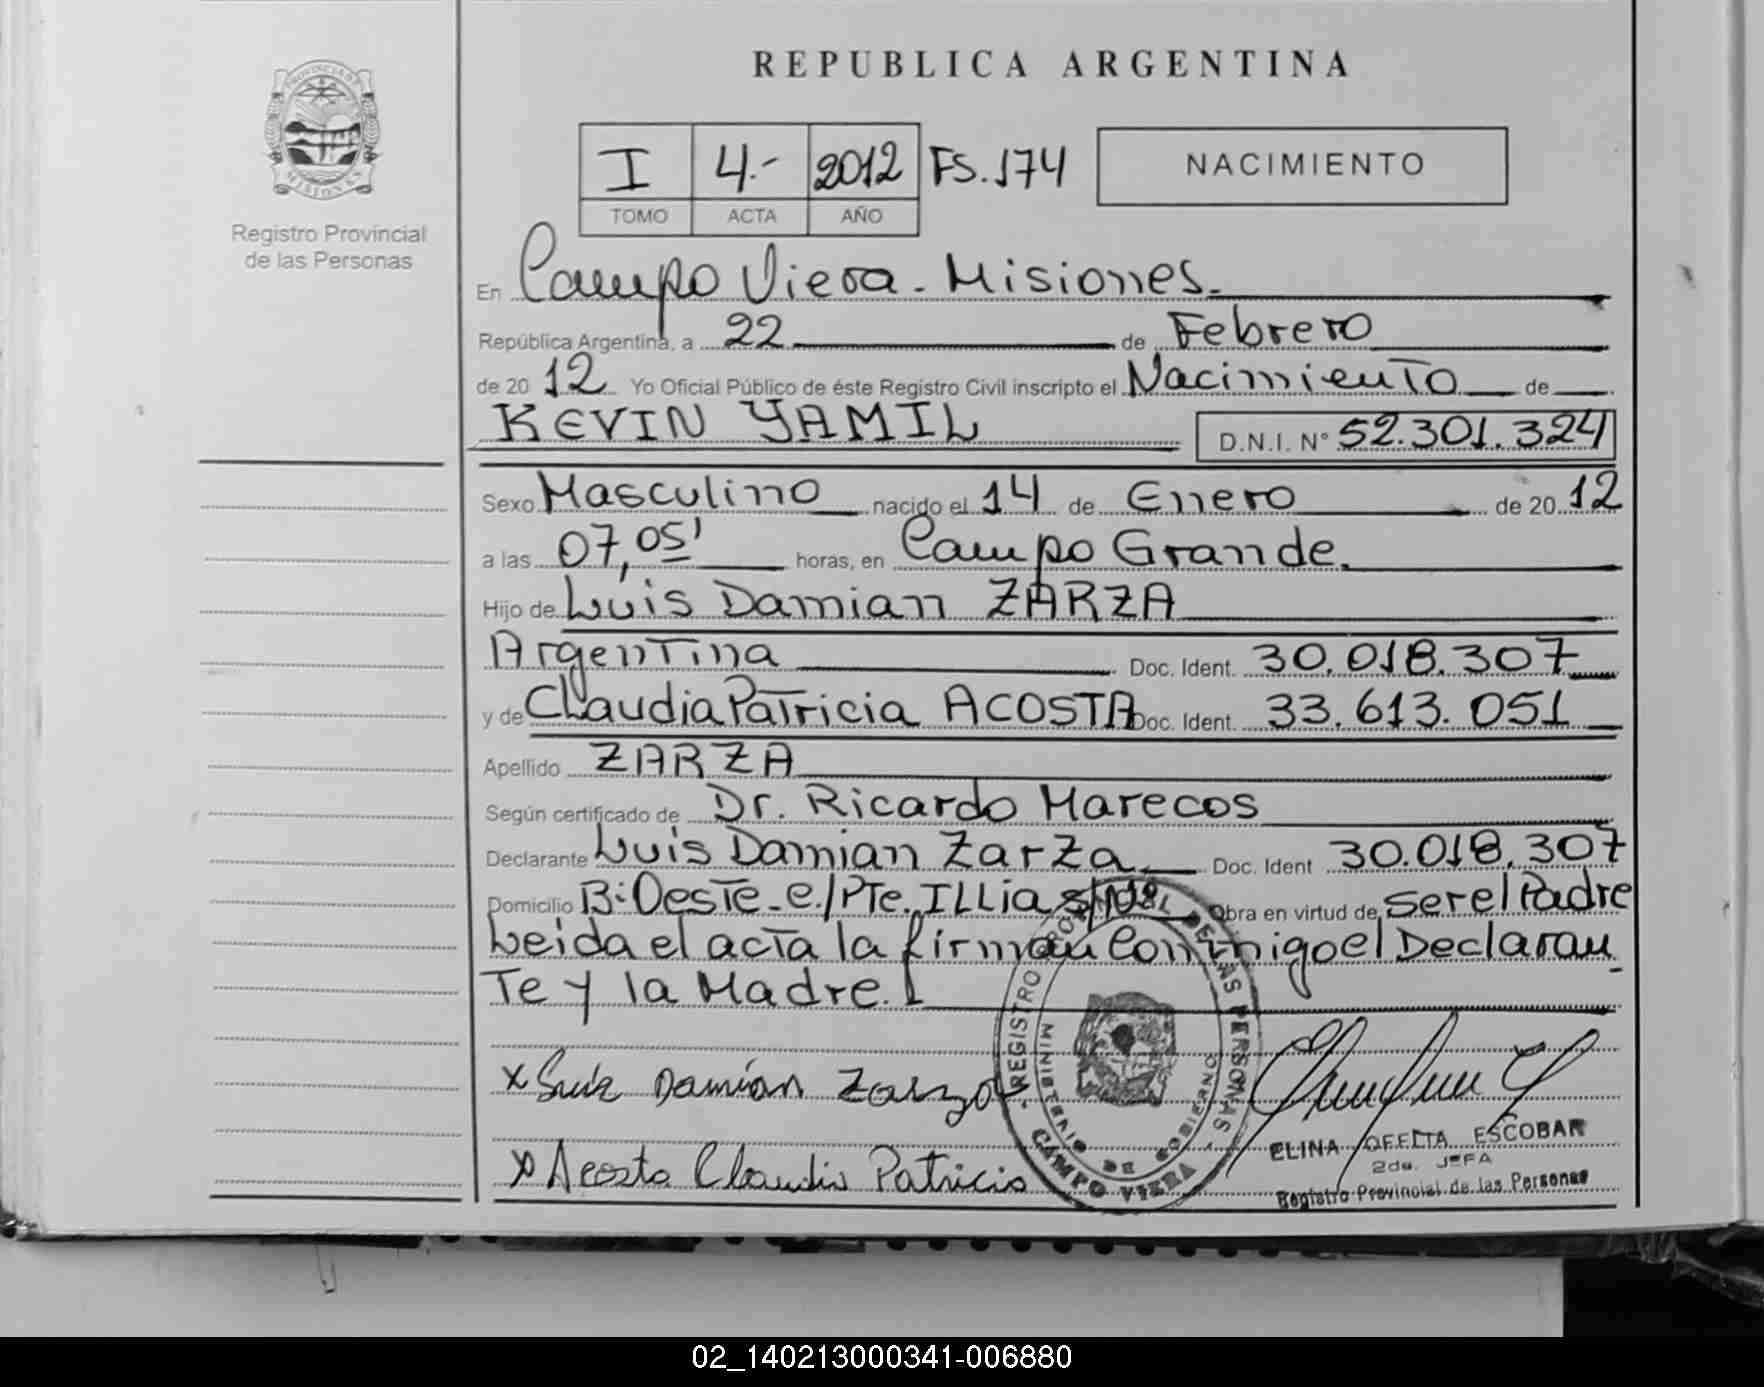 PROVINCIA DE
MISIONES
Registro Provincial
de las Personas
REPUBLICA ARGENTINA
I 4.- 2012 FS.174
TOMO ACTA AÑO
NACIMIENTO
En Campo Viera - Misiones.
República Argentina, a 22 de Febrero
de 20 12 Yo Oficial Público de éste Registro Civil inscripto el Nacimiento de
KEVIN YAMIL D.N.I. N° 52.301.324
Sexo Masculino nacido el 14 de Enero de 20 12
a las 07,05' horas, en Campo Grande.
Hijo de Luis Damian ZARZA
Argentina Doc. Ident. 30.018.307
y de Claudia Patricia ACOSTA Doc. Ident. 33.613.051
Apellido ZARZA
Según certificado de Dr. Ricardo Marecos
Declarante Luis Damian Zarza Doc. Ident 30.018.307
Domicilio B: Oeste - e/Pte. ILLia s/Nº Obra en virtud de ser el Padre
Leida el acta la firman Conmigo el Declaran
Te y la Madre.
x Luis Damian Zarza
x Acosta Claudia Patricia
REGISTRO PROVINCIAL DE LAS PERSONAS
MINISTERIO DE GOBIERNO
CAMPO VIERA
ELINA OFELIA ESCOBAR
2da. JEFA
Registro Provincial de las Personas
02_140213000341-006880